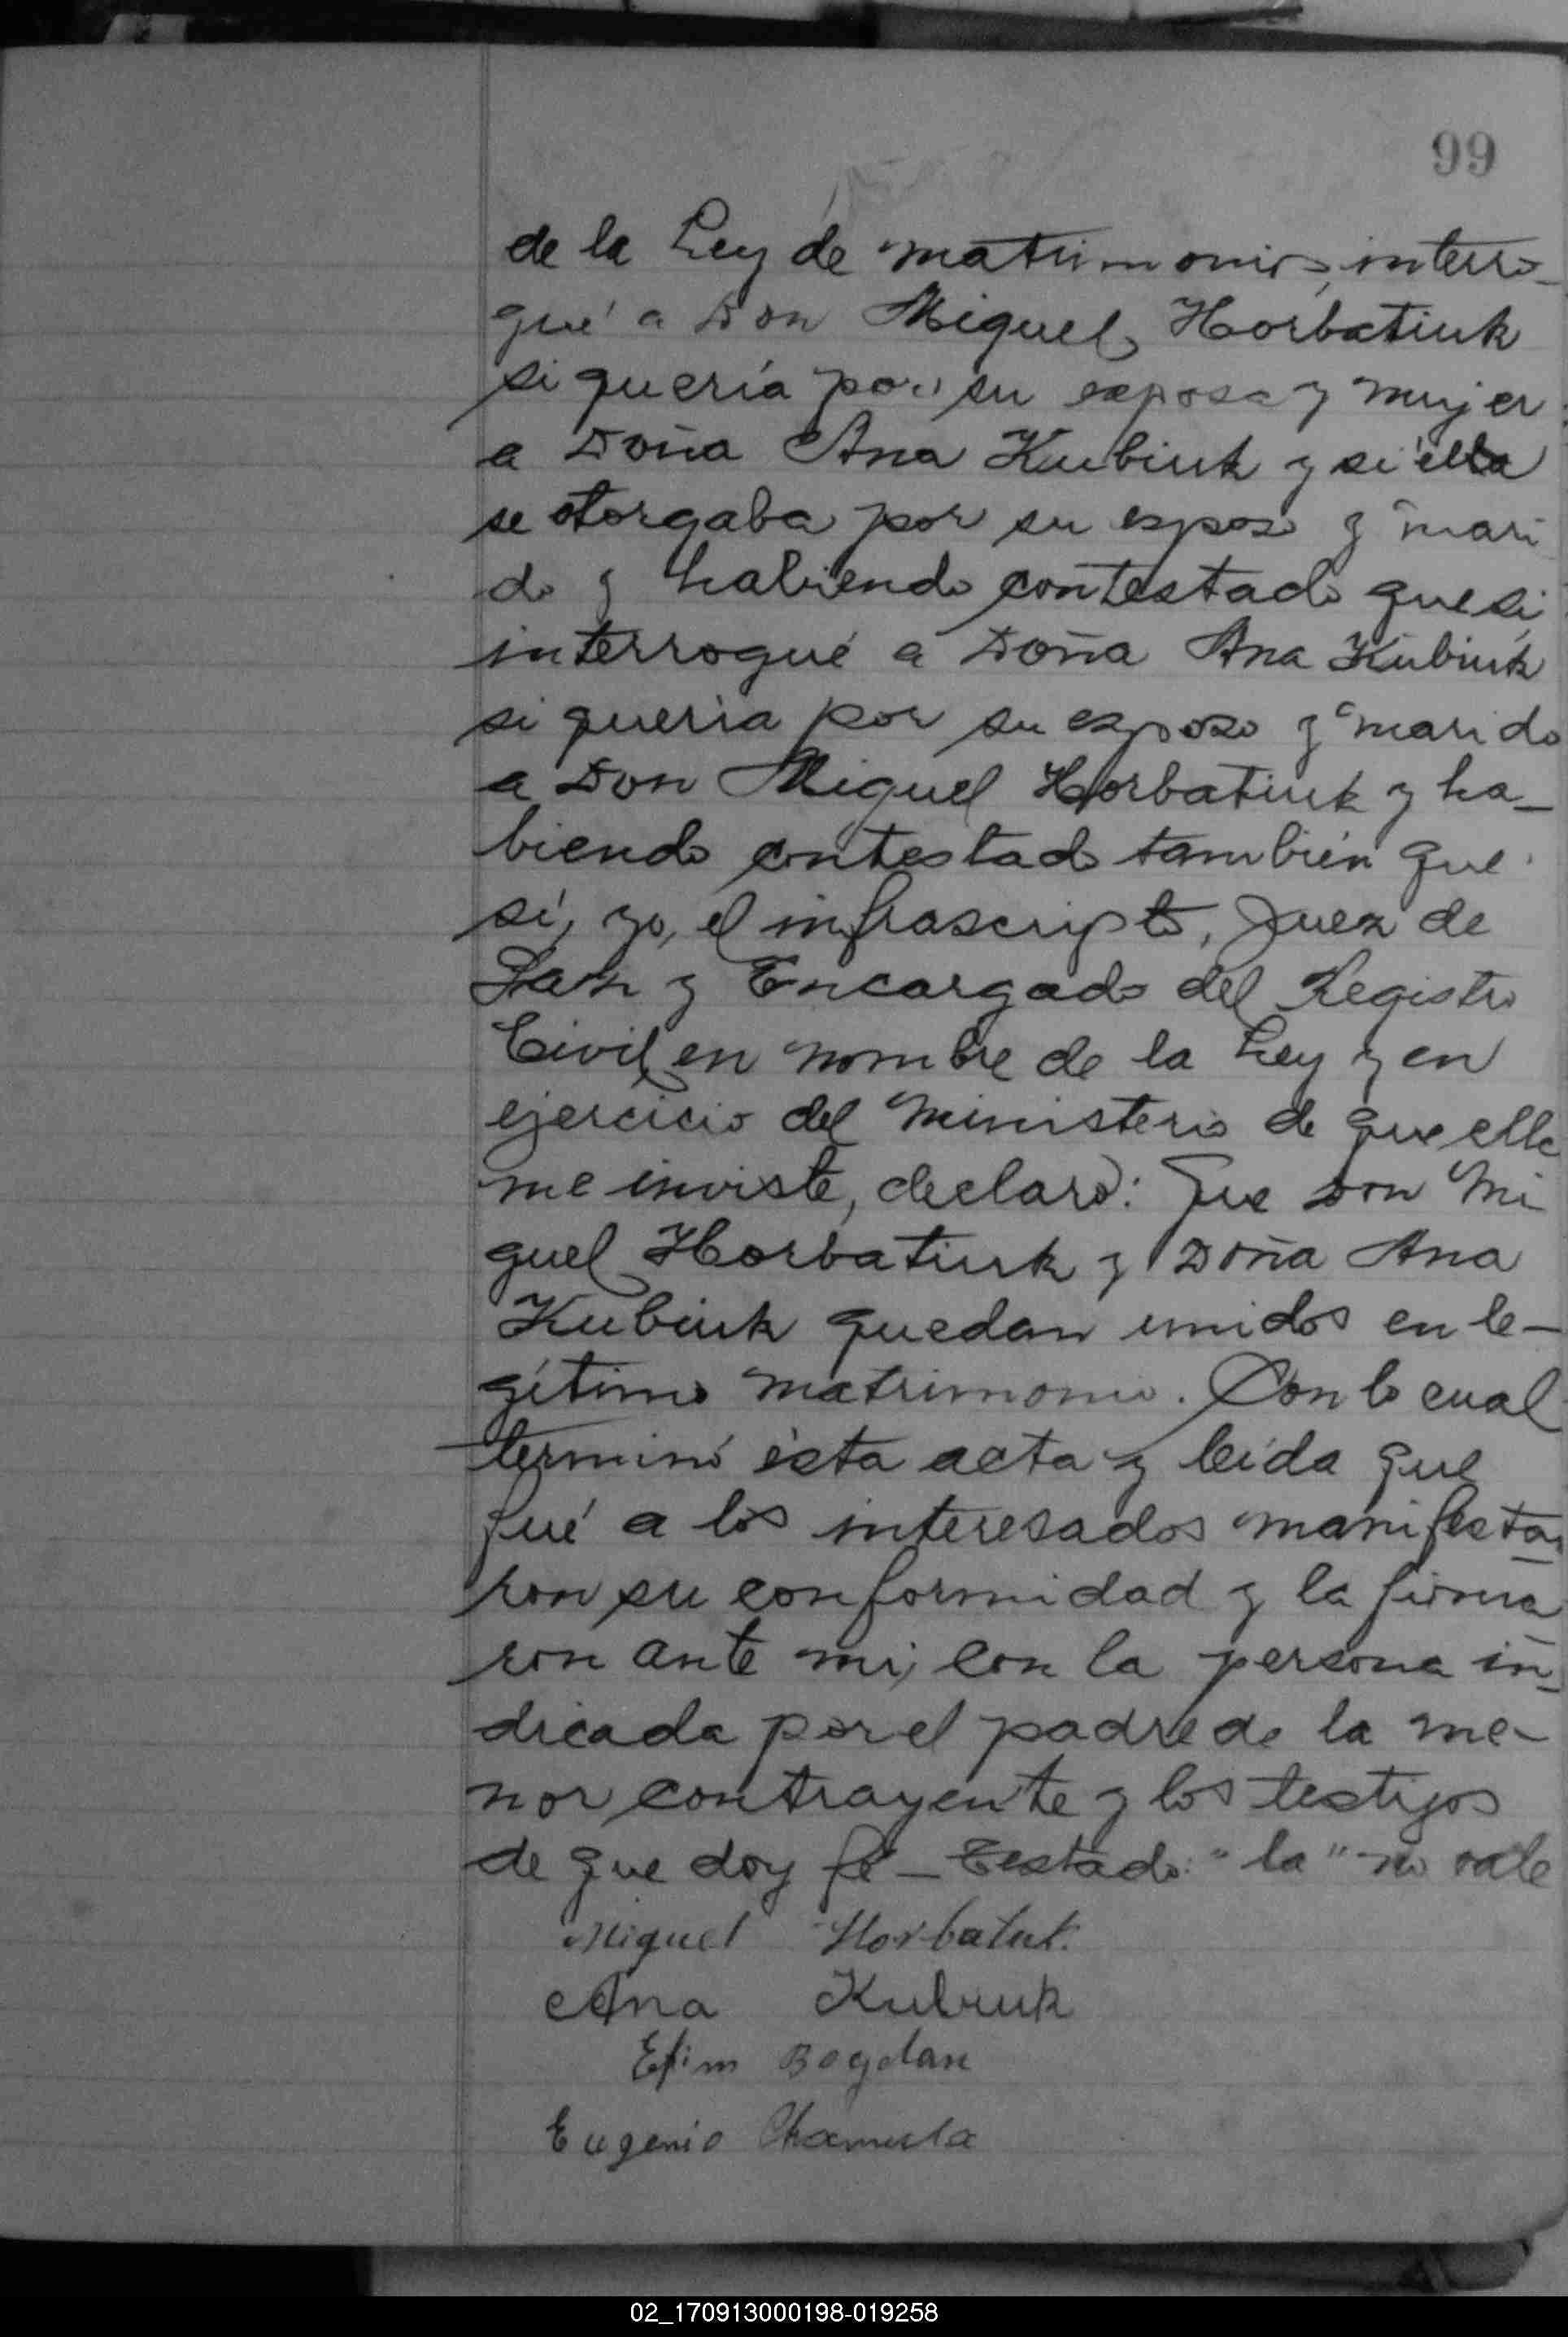 99
de la Ley de matrimonio, interro-
gué a Don Miguel Horbatiuk
si quería por su esposa y mujer
a Doña Ana Kubiuk y si ella
se otorgaba por su esposo y mari
do y habiendo contestado que si
interrogué a Doña Ana Kubiuk
si quería por su esposo y marido
a Don Miguel Horbatiuk y ha-
biendo contestado también que
sí, yo, el infrascripto, Juez de
Paz y Encargado del Registro
Civil en nombre de la Ley y en
ejercicio del ministerio de que ella
me inviste, declaro: Que Don Mi
guel Horbatiuk y Doña Ana
Kubiuk quedan unidos en le-
gítimo matrimonio. Con lo cual
terminó ésta acta y leída que
fué a los interesados manifesta-
ron su conformidad y la firma
ron ante mi, con la persona in-
dicada por el padre de la me-
nor contrayente y los testigos
de que doy fé - Testado: "la" no vale
Miguel Horbatiuk.
Ana Kubiuk
Efim Bogdan
Eugenio Chamula
02_170913000198-019258